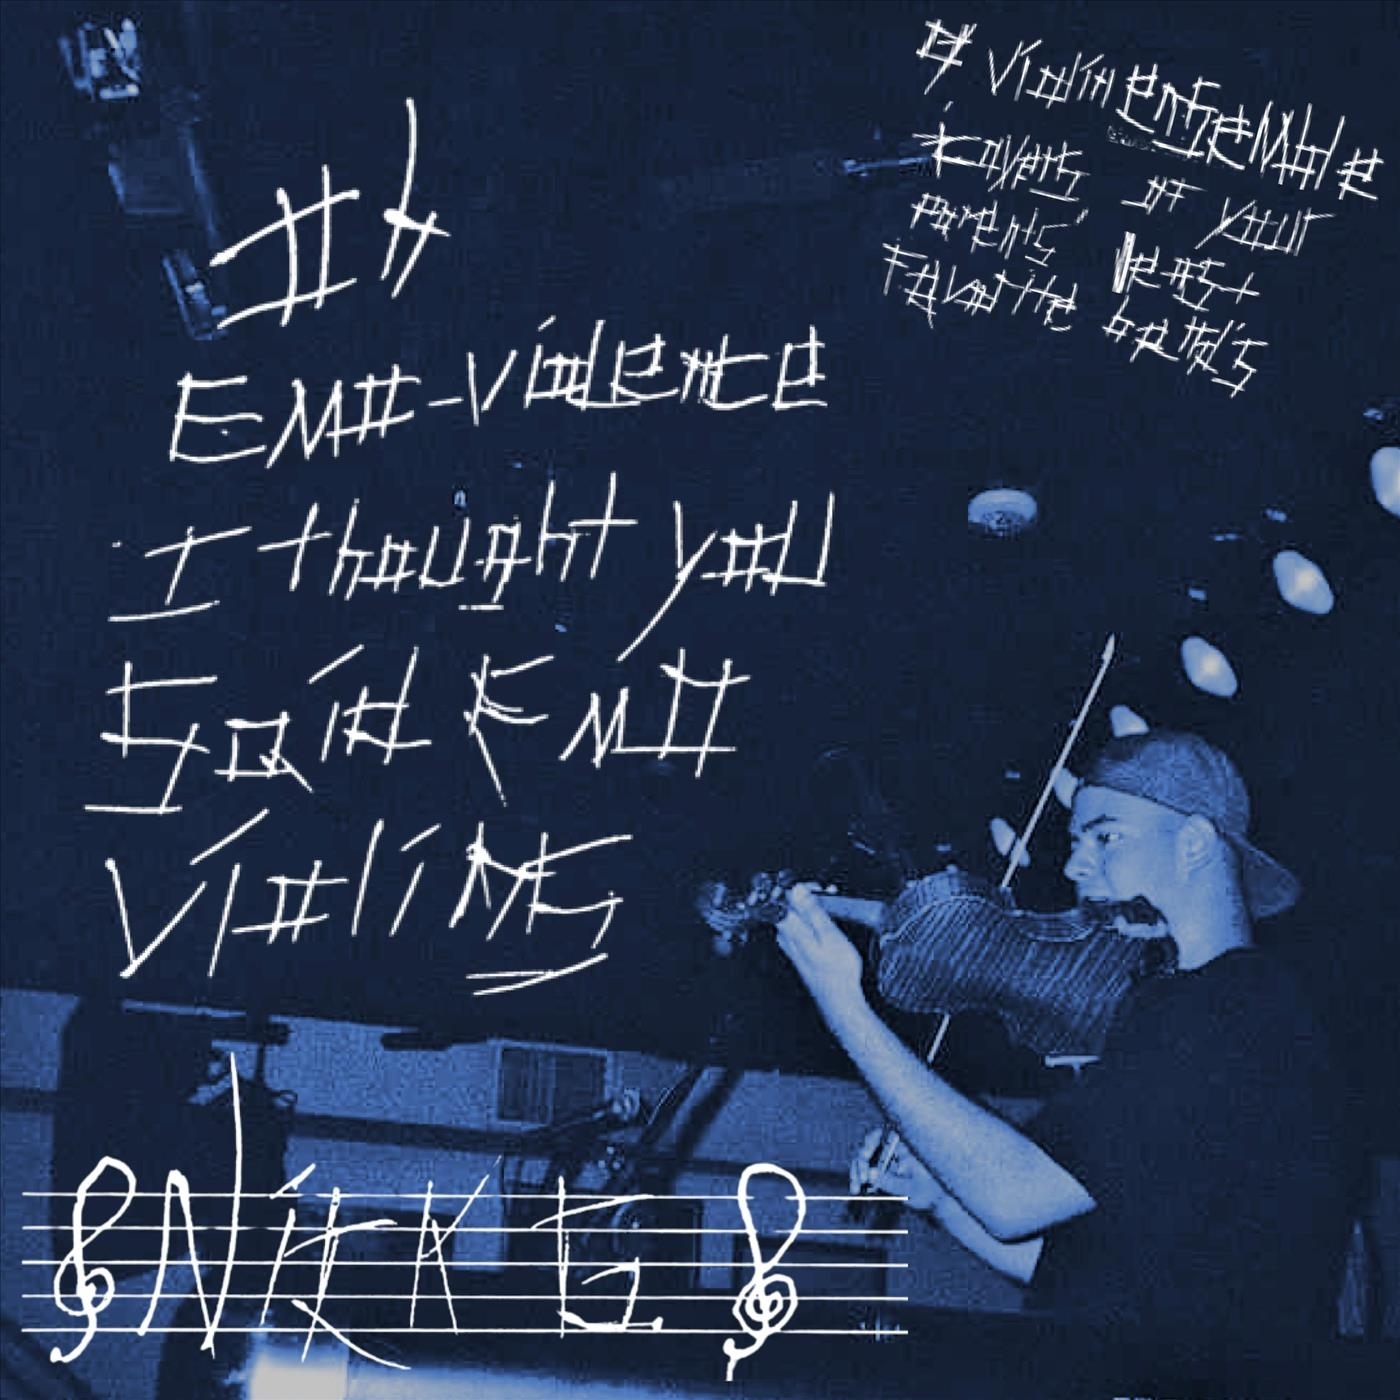 Oh
Emo-violence
I thought you
Said Emo
Violins
a violin ensemble
covers of your
parents' least
favorite bands
Nick G.